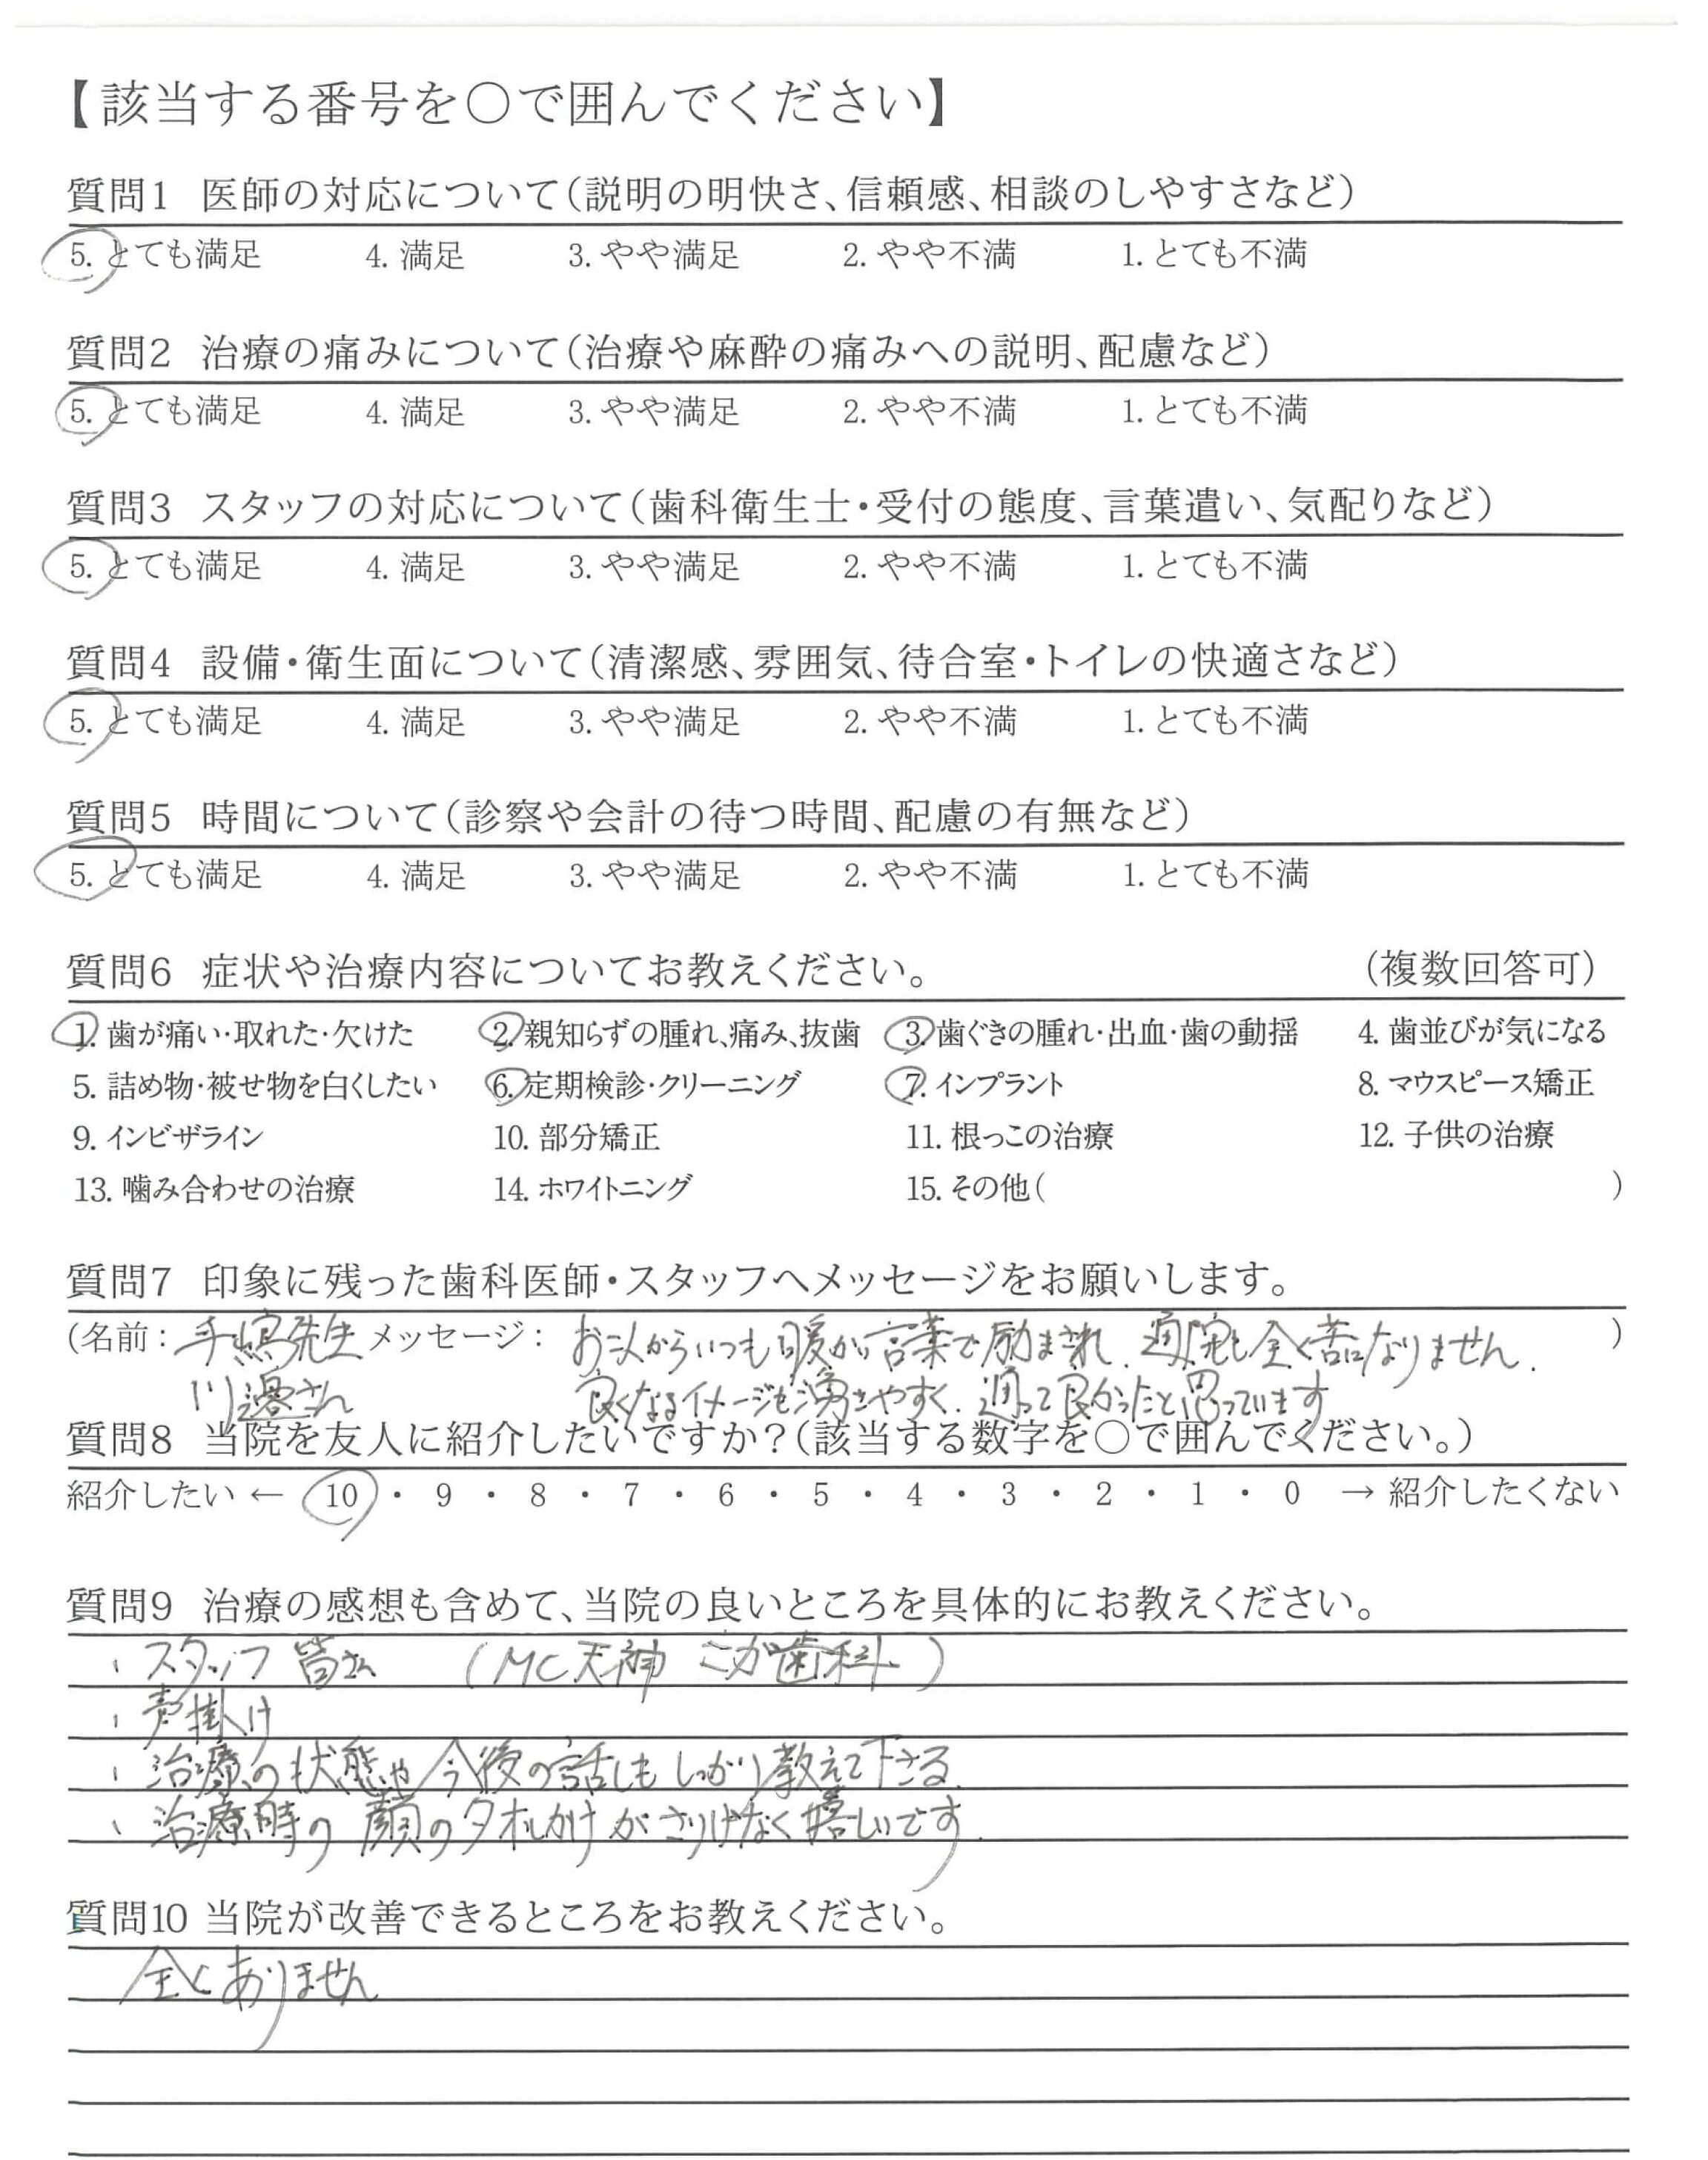 【該当する番号を○で囲んでください】
質問1 医師の対応について(説明の明快さ、信頼感、相談のしやすさなど)
5. とても満足 4. 満足 3. やや満足 2. やや不満 1. とても不満
質問2 治療の痛みについて(治療や麻酔の痛みへの説明、配慮など)
5. とても満足 4. 満足 3. やや満足 2. やや不満 1. とても不満
質問3 スタッフの対応について(歯科衛生士・受付の態度、言葉遣い、気配りなど)
5. とても満足 4. 満足 3. やや満足 2. やや不満 1. とても不満
質問4 設備・衛生面について(清潔感、雰囲気、待合室・トイレの快適さなど)
5. とても満足 4. 満足 3. やや満足 2. やや不満 1. とても不満
質問5 時間について(診察や会計の待つ時間、配慮の有無など)
5. とても満足 4. 満足 3. やや満足 2. やや不満 1. とても不満
質問6 症状や治療内容についてお教えください。 (複数回答可)
1. 歯が痛い・取れた・欠けた 2. 親知らずの腫れ、痛み、抜歯 3. 歯ぐきの腫れ・出血・歯の動揺 4. 歯並びが気になる
5. 詰め物・被せ物を白くしたい 6. 定期検診・クリーニング 7. インプラント 8. マウスピース矯正
9. インビザライン 10. 部分矯正 11. 根っこの治療 12. 子供の治療
13. 噛み合わせの治療 14. ホワイトニング 15. その他( )
質問7 印象に残った歯科医師・スタッフへメッセージをお願いします。
(名前: 手嶌先生 メッセージ: お二人からいつも暖かい言葉で励まされ、通院も全く苦になりません. )
川邊さん 良くなるイメージも湧きやすく、通って良かったと思っています
質問8 当院を友人に紹介したいですか?(該当する数字を○で囲んでください。)
紹介したい ← 10 ・ 9 ・ 8 ・ 7 ・ 6 ・ 5 ・ 4 ・ 3 ・ 2 ・ 1 ・ 0 → 紹介したくない
質問9 治療の感想も含めて、当院の良いところを具体的にお教えください。
、スタッフ皆さん (MC天神 こが歯科)
、声掛け
、治療の状態や今後の話しもしっかり教えて下さる.
、治療時の顔のタオルかけがさりげなく嬉しいです.
質問10 当院が改善できるところをお教えください。
全くありません